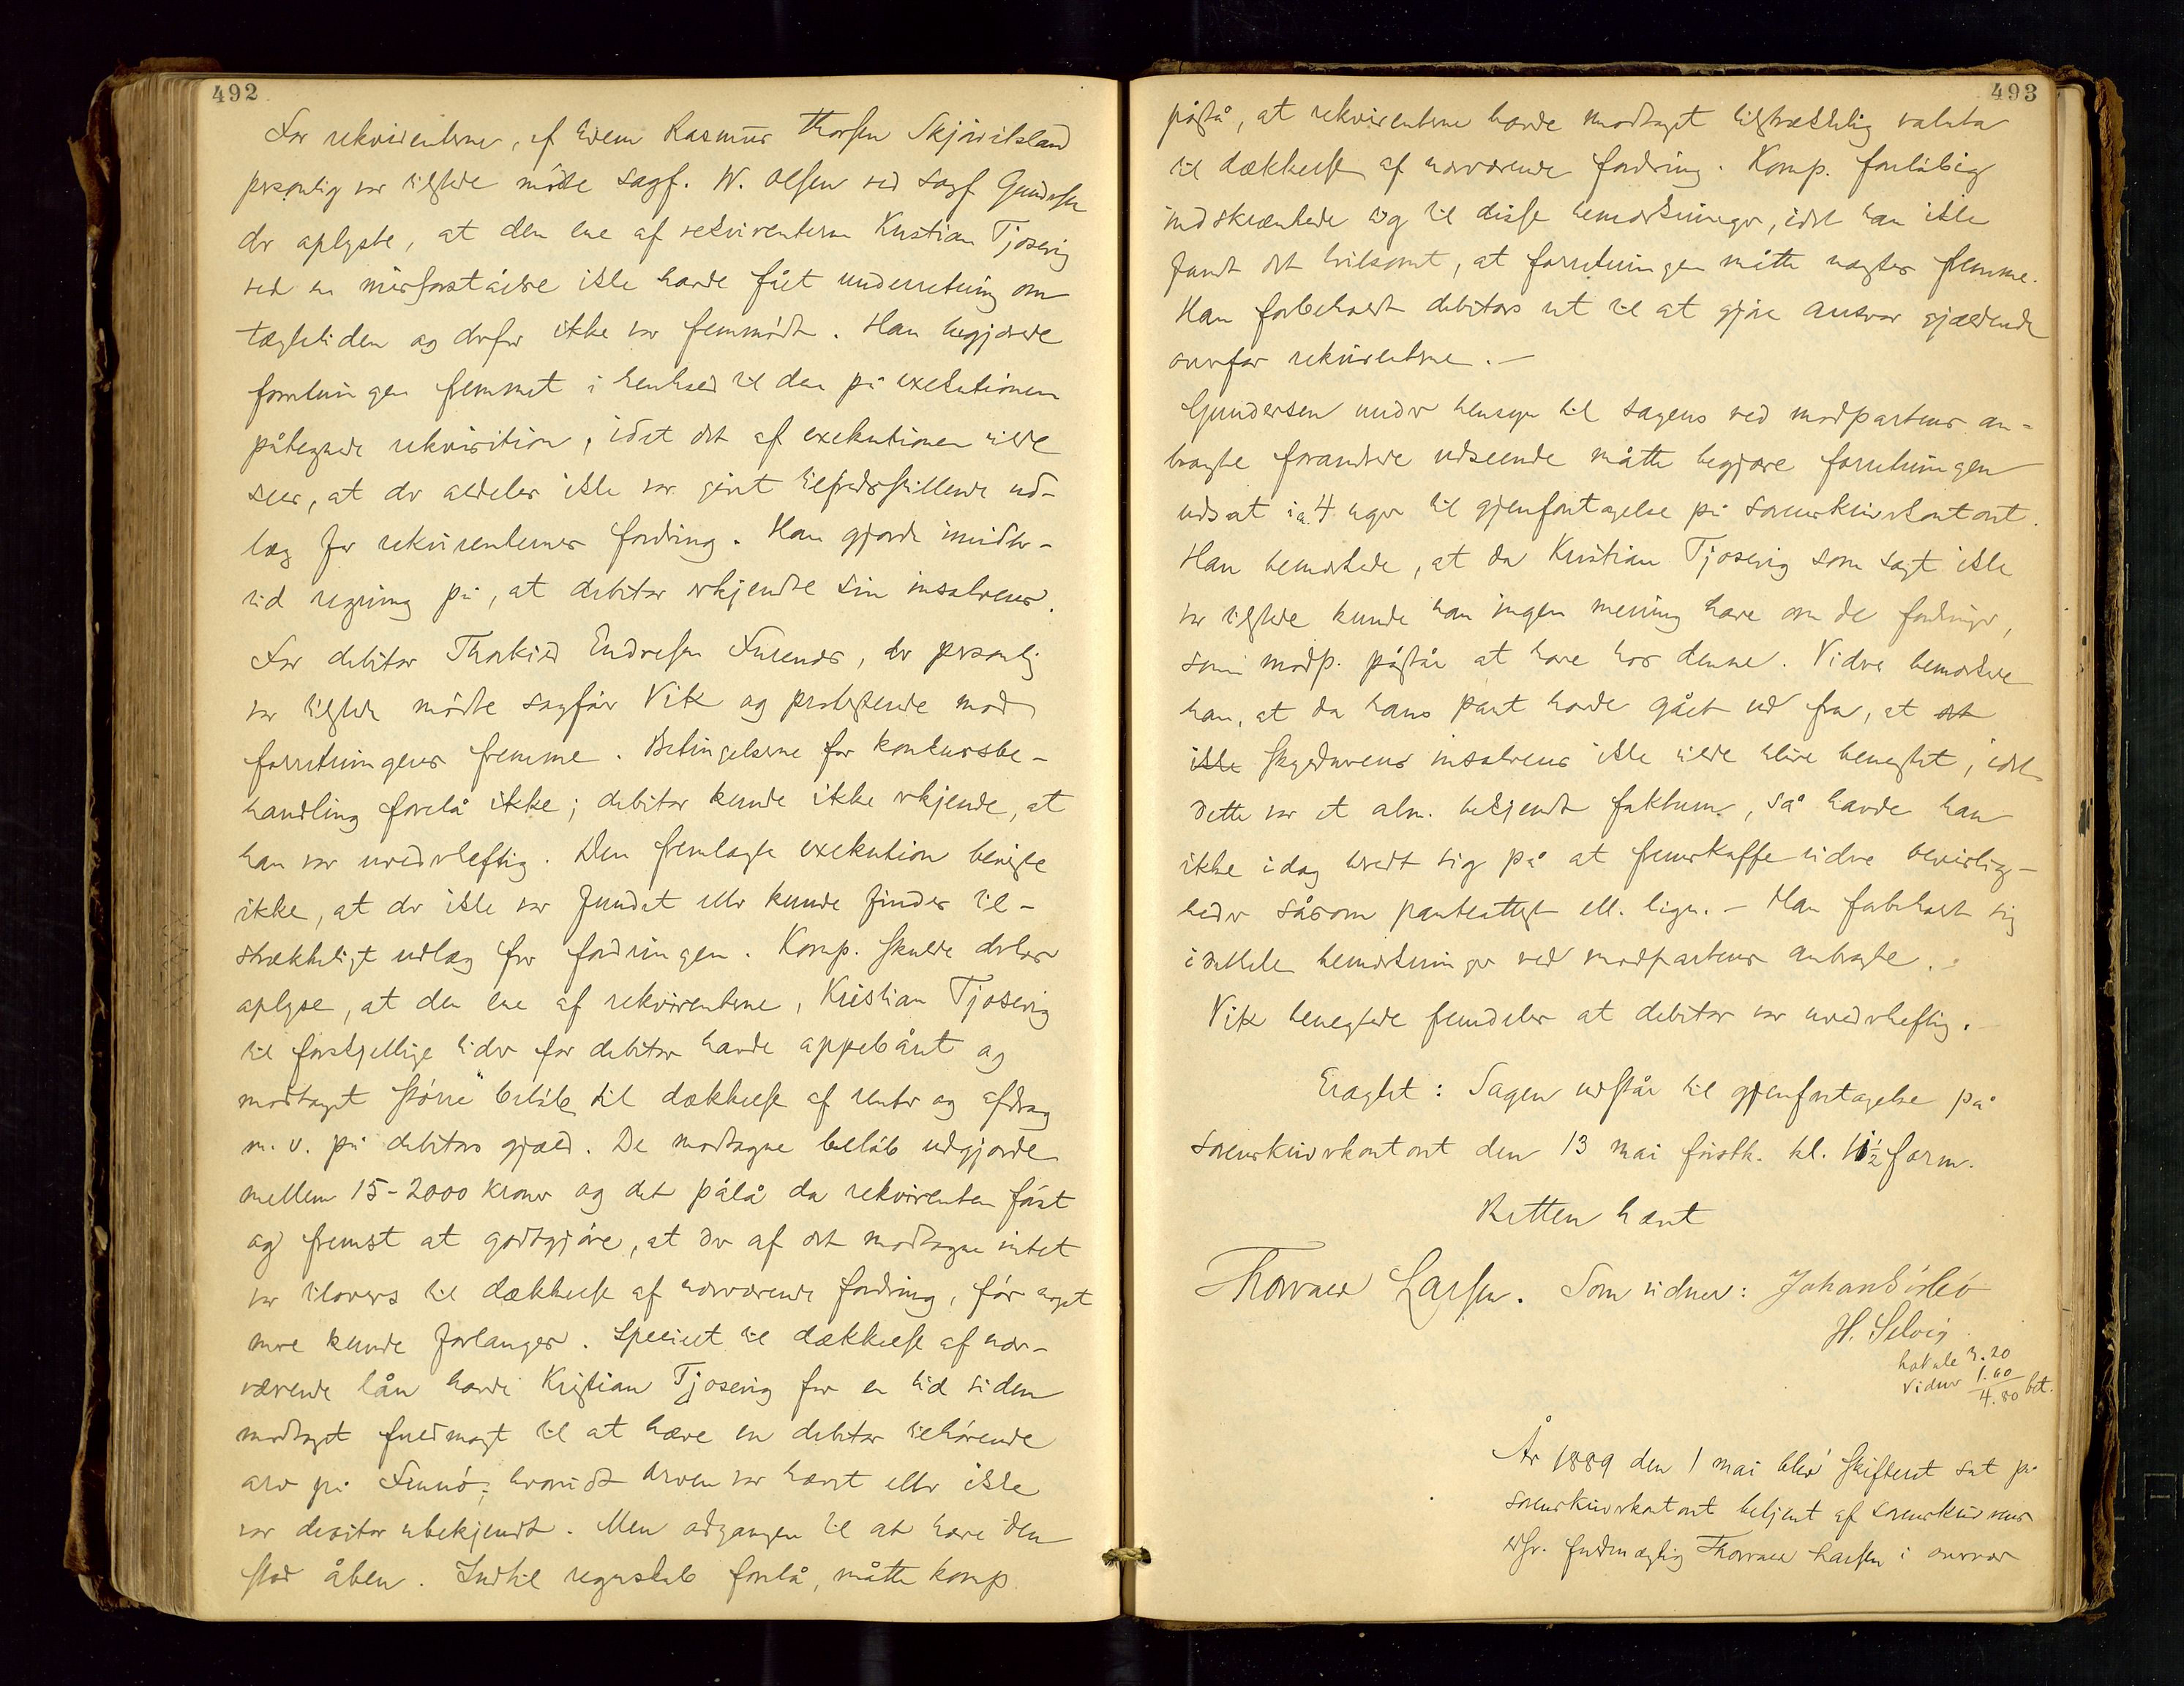 492
For rekvirenterne, af hvem Rasmus Thorsen Skjørvitsland
personlig var tilstede mødte sagf. W. Olsen ved sagf Gundersen
der oplyste, at den ene af rekvirenterne Kristian Tjosevig
ved en misforståelse ikke havde fået underretning om
tægtetiden og derfor ikke var fremmødt. Han begjærede
forretningen fremmet i henhold til den på exekutionen
påtegnede rekvisition, idet det af exekutionen vilde
sees, at der aldeles ikke var givet tilfredsstillende ud-
læg for rekvirenternes fordring. Han gjorde imidler-
tid regning på, at debitor erkjendte sin insolvens.
For debitor Thorkild Endresen Furenes, der personlig
var tilstede mødte sagfører Vik og protesterede mod
forretningens fremme. Betingelserne for konkursbe-
handling forelå ikke; debitor kunde ikke erkjende, at
han var uvederheftig. Den fremlagte exekution beviste
ikke, at der ikke var fundet eller kunde findes til-
strækkeligt udlæg for fordringen. Komp. skulde derhos
oplyse, at den ene af rekvirenterne, Kristian Tjosevig
til forskjellige tider for debitor havde oppebåret og
modtaget større beløb til dækkelse af renter og afdrag
m. v. på debitors gjæld. De modtagne beløb udgjorde
mellem 15-2000 kroner og det pålå da rekvirenten først
og fremst at godtgjøre, at der af det modtagne intet
var tilovers til dækkelse af nærværende fordring, før noget
mere kunde forlanges. Specielt til dækkelse af nær-
værende lån havde Kristian Tjosevig for en tid siden
modtaget fuldmagt til at hæve en debitor tilhørende
arv på Finnø; hvorvidt arven var hævet eller ikke
var debitor ubekjendt. Men adgangen til at hæve den
stod åben. Indtil regnskab forelå, måtte komp.
493
påstå, at rekvirenterne havde modtaget tilstrækkelig valuta
til dækkelse af nærværende fordring. Komp. foreløbig
indskrænkede sig til disse bemærkninger, idet han ikke
fandt det tvilsomt, at forretningen måtte nægtes fremme.
Han forbeholdt debitors ret til at gjøre ansvar gjældende
overfor rekvirenterne.—
Gundersen under hensyn til sagens ved modpartens an-
bragte forandrede udseende måtte begjære forretningen
udsat i ca 4 uger til gjenforetagelse på sorenskriverkontoret.
Han bemærkede, at da Kristian Tjosevig som sagt ikke
var tilstede kunde han ingen mening have om de fordringer,
som modp. påstår at have hos denne. Videre bemærkede
han, at da hans part havde gået ud fra, at det
ikke skyldnerens insolvens ikke vilde blive benegtet, idet
dette var et alm. bekjendt faktum, så havde han
ikke idag beredt sig på at fremskaffe videre bevislig-
heder såsom panteattest ell. lign. — Han forbeholdt sig
i detteles bemærkninger ved modpartens anbragte.
Vik benegtede fremdeles at debitor var uvederheftig.
Eragtet: Sagen udstår til gjenforetagelse på
sorenskriverkontoret den 13 mai førstk. kl. 11½ form.
Retten hævet
Thorvald Larsen. Som vidner: Johan Sørbø
H. Selvig
lokale 3.20
vidner 1.60
4.80 bet.
År 1889 den 1 mai blev skifteret sat på
sorenskriverkontoret betjent af sorenskriverens
edsv. fuldmægtig Thorvald Larsen i overvær